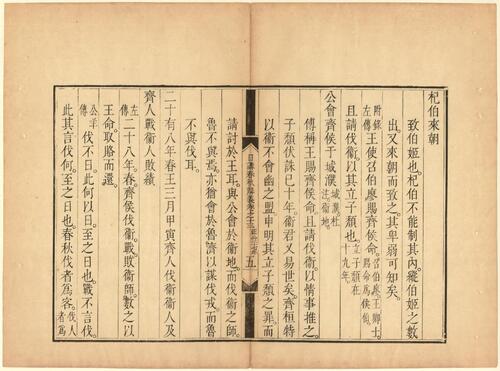 杞伯來朝
致伯姬也杞伯不能制其內縱伯姬之數
出又來朝而致之其卑弱可知矣
附錄左傳王使召伯廖賜齊侯命召伯廖王卿士賜命爲侯伯
且請伐衞以其立子頹也立子頹在十九年
公會齊侯于城濮城濮杜註衞地
傳稱王賜齊侯命且請伐衞以情事推之
子頹伏誅已十年衞君又易世矣齊桓特
以衞不會幽之盟申明其立子頹之罪而
日講春秋解義卷之十三
五
請討於王耳與公會於衞地而伐衞之師
魯不與焉亦猶會於魯濟以謀伐戎而魯
不與伐耳
二十有八年春王三月甲寅齊人伐衞衞人及
齊人戰衞人敗績
左傳二十八年春齊侯伐衞戰敗衞師數之以
王命取賂而還
公羊傳伐不日此何以日至之日也戰不言伐
此其言伐何至之日也春秋伐者爲客伐人者爲